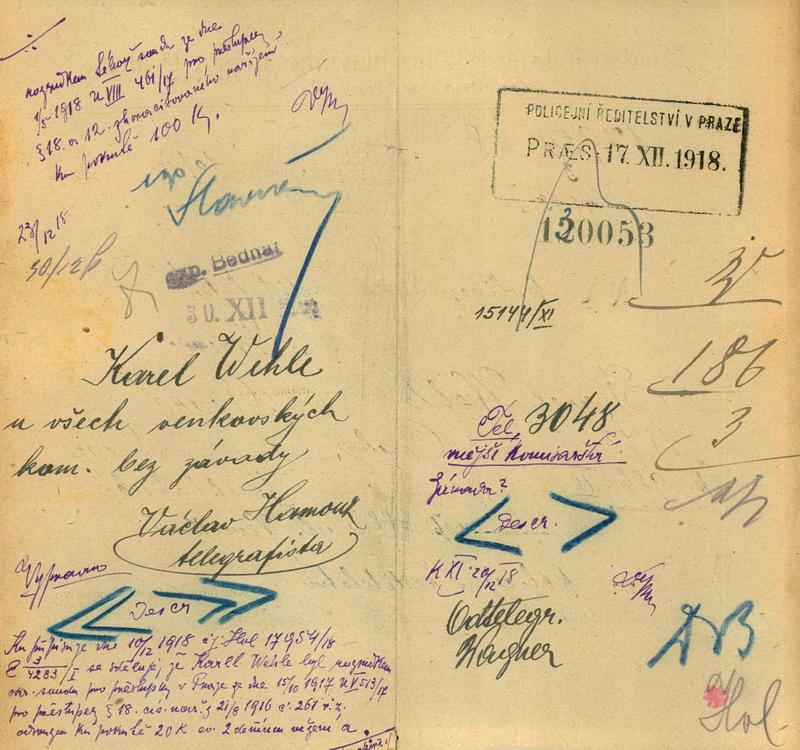 rozsudkem soudu ze dne
1/5 1918 U VIII 461/17 pro přestupky
§ 18. a 12. zhoracitovaného nařízení
ku pokutě 100 K.
23/12 18
30/12
exp. Bednář
30. XII
Karel Wehle
u všech venkovských
kom. bez závady
Václav Hamouz
telegrafista
Vypraviti
Descr
Ku přípisu ze dne 10/12 1918 čj. Hol 17954/18
3
E 4283/I se sděluje, že Karel Wehle byl rozsudkem
okr. soudu pro přestupky v Praze ze dne 15/10 1917 U V 513/17
pro přestupek § 18. cís. nař. z 21/8 1916 č. 261 ř. z.
odsouzen ku pokutě 20 K ev. 2 denním vězení a
POLICEJNÍ ŘEDITELSTVÍ V PRAZE
PRÆS. 17. XII. 1918.
120053
3
15144/XI
186
3
Tel. 3048
zdejší komisařství
Descr.
K XI 20/12 18
Odtelegr.
Wagner
Hol.